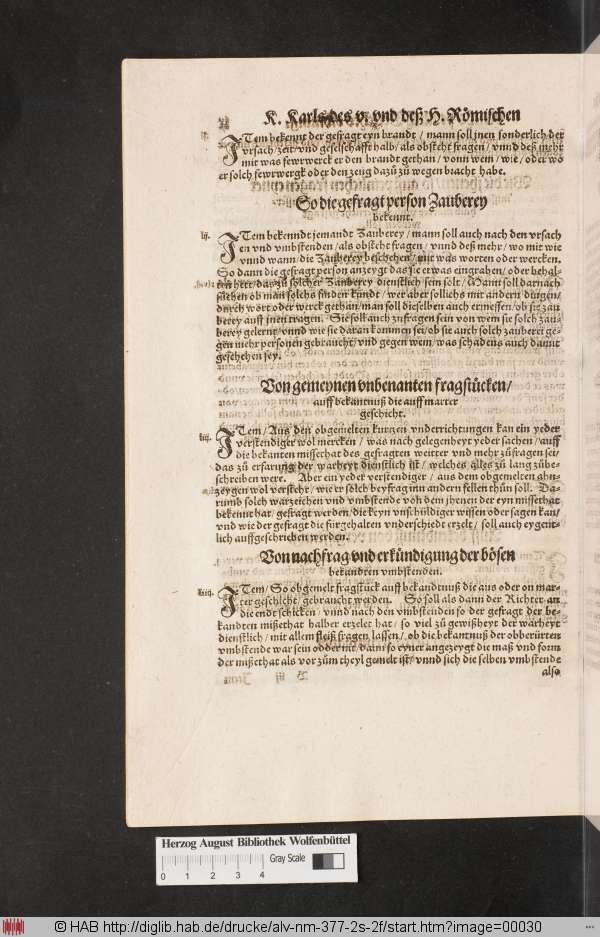 K. Karls des v. vnd deß H. Römischen
lj.
ITem bekennt der gefragt eyn brandt / mann soll jnen sonderlich der
vrsach / zeit / vnd gesellschafft halb / als obsteht fragen / vnnd deß mehr
mit was fewrwerck er den brandt gethan / vonn wem / wie / oder wo
er solch fewrwergk oder den zeug dazů zu wegen bracht habe.
So die gefragt person Zauberey
bekennt.
lij.
ITem bekenndt jemandt Zauberey / mann soll auch nach den vrsach
en vnd vmbstenden / als obsteht fragen / vnnd deß mehr / wo mit wie
vnnd wann / die Zauberey beschehen / mit was worten oder wercken.
So dann die gefragt person anzeygt das sie etwas eingraben / oder behal-
ten hett / das zů solcher Zauberey dienstlich sein solt / Mann soll darnach
suchen ob man solchs finden kündt / wer aber sollichs mit andern dingen /
durch wort oder werck gethan / man soll dieselben auch ermessen / ob sie zau
berey auff jnen tragen. Sie soll auch zufragen sein von wem sie solch zaus
berey gelernt / vnnd wie sie daran kommen sei / ob sie auch solch zauberei ge-
gen mehr personen gebraucht / vnd gegen wem / was schadens auch damit
geschehen sey.
Von gemeynen vnbenanten fragstücken /
auff bekantnuß die auff marter
geschicht.
liij.
ITem / Auß den obgemelten kurtzen vnderrichtungen kan ein yeder
verstendiger wol mercken / was nach gelegenheyt yeder sachen / auff
die bekanten missethat des gefragten weitter vnd mehr zůfragen sei /
das zů erfarung der warheyt dienstlich ist / welches alles zů lang zůbe-
schreiben were. Aber ein yeder verstendiger / aus dem obgemelten ahn-
zeygen wol versteht / wie er solch beyfrag inn andern fellen thůn soll. Da-
rumb solch warzeichen vnd vmbstende von dem jhenen der eyn missethat
bekennt hat / gefragt werden / die keyn vnschüldiger wissen oder sagen kan /
vnd wie der gefragt die fürgehalten vnderschiedt erzelt / soll auch eygent-
lich auffgeschrieben werden.
Von nachfrag vnd erkündigung der bösen
bekandten vmbstenden.
liiij.
ITem / So obgemelt fragstück auff bekandtnuß die aus oder on mar-
ter geschicht / gebraucht werden. So soll als dann der Richter an
die endt schicken / vnnd nach den vmbstenden so der gefragt der be-
kandten mißethat halber erzelet hat / so viel zu gewißheyt der warheyt
dienstlich / mit allem fleiß fragen lassen / ob die bekantnuß der obberürten
vmbstende war sein oder nit / dann so eyner angezeygt die maß vnd form
der mißethat als vor zům theyl gemelt ist / vnnd sich die selben vmbstende
also
Herzog August Bibliothek Wolfenbüttel
Gray Scale
0 1 2 3 4
© HAB http://diglib.hab.de/drucke/alv-nm-377-2s-2f/start.htm?image=00030